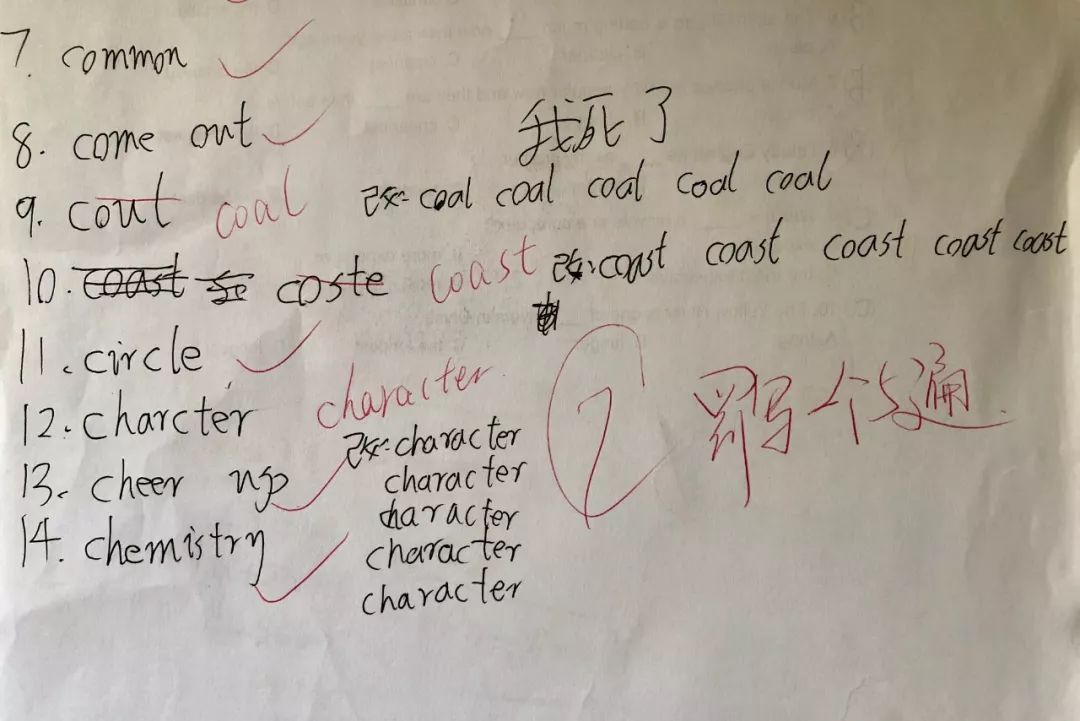 7. common
8. come out
我死了
9. cout coal 改: coal coal coal coal coal
10. coast coste coast 改: coast coast coast coast coast
11. circle
12. charcter character
改: character
13. cheer up
character
haracter
14. chemistry
character
character
2 罚写一个5遍